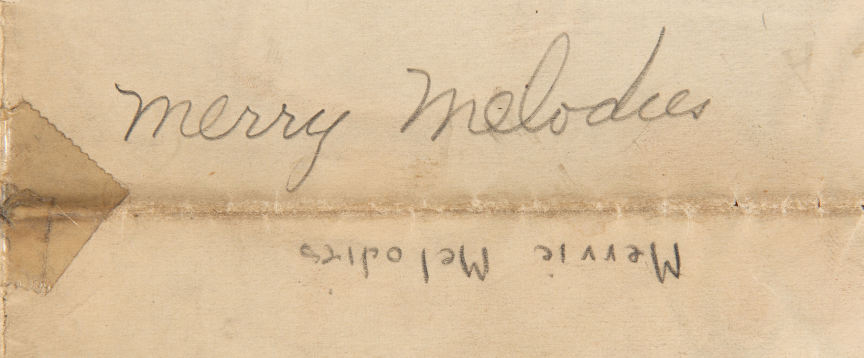 Merry Melodies
Merrie Melodies